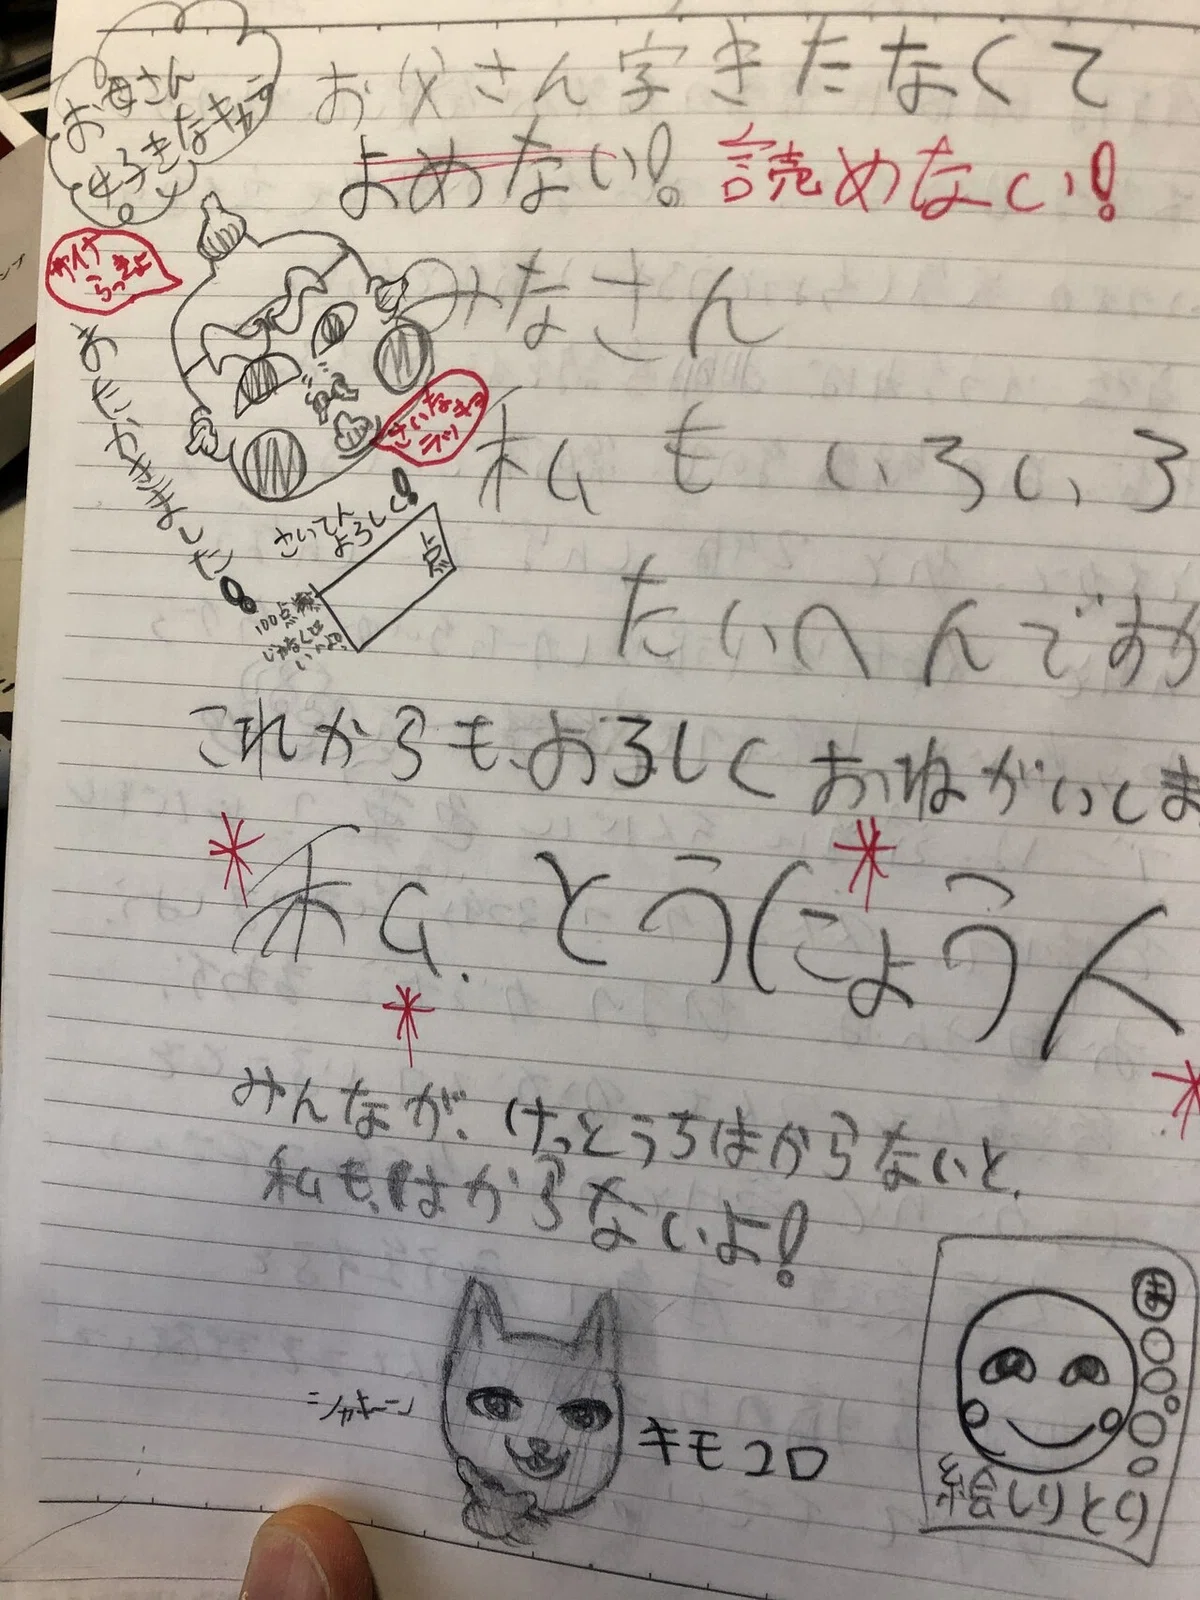 お母さん
好きなキャラ
お父さん字きたなくて
よめない! 読めない!
みなさん
おたかきました
さいてん
よろしく!
点
100点
じゃなくて
いいよ
私もいろいろ
たいへんですが
これからもよろしくおねがいしま
私 とう(こよう人
みんなが、けっとうちはからないと、
私も、はからないよ!
シャキーン
キモコロ
ま
絵しりとり